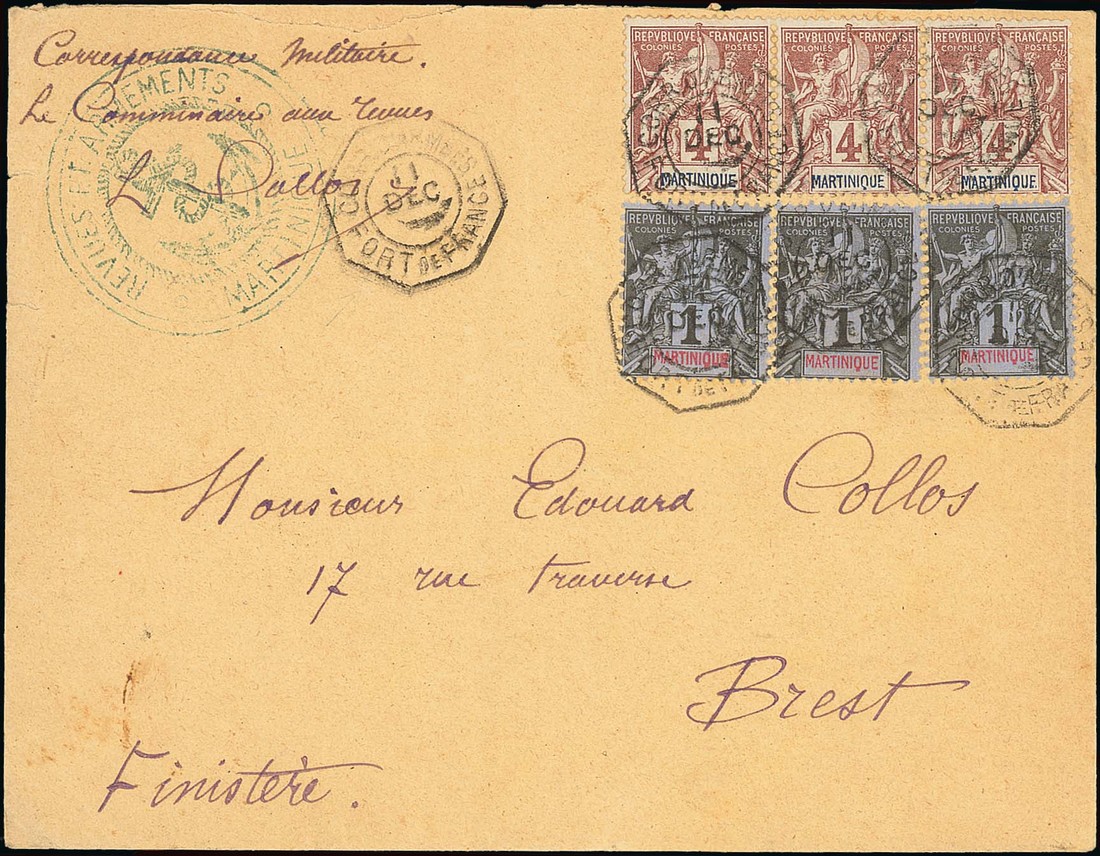 Correspondance Militaire.
Le Commissaire aux revues
L. Dollos
REVUES ET ARMEMENTS
MARTINIQUE
COR. D'ARMÉES
11
DEC.
FORT DE FRANCE
REPVBLIQVE FRANÇAISE
COLONIES POSTES
4
MARTINIQUE
REPVBLIQVE FRANÇAISE
COLONIES POSTES
4
MARTINIQUE
REPVBLIQVE FRANÇAISE
COLONIES POSTES
4
MARTINIQUE
11
DEC.
REPVBLIQVE FRANÇAISE
COLONIES POSTES
1
MARTINIQUE
REPVBLIQVE FRANÇAISE
COLONIES POSTES
1
MARTINIQUE
REPVBLIQVE FRANÇAISE
COLONIES POSTES
1
MARTINIQUE
Monsieur Edouard Collos
17 rue Traverse
Brest
Finistère.